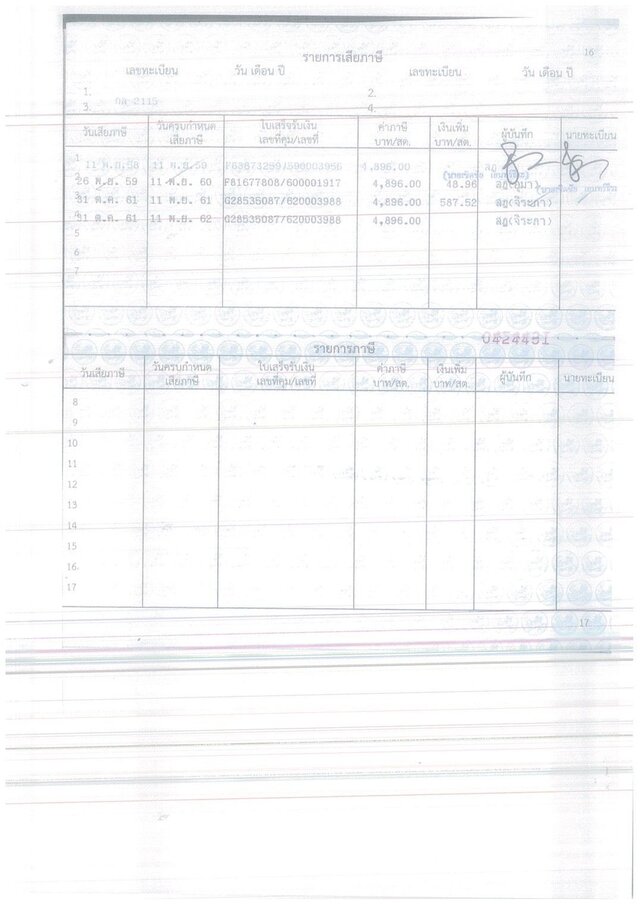 16
รายการเสียภาษี
เลขทะเบียน วัน เดือน ปี เลขทะเบียน วัน เดือน ปี
1. 2.
3. กล 2115 4.
วันเสียภาษี วันครบกำหนดเสียภาษี ใบเสร็จรับเงิน เลขที่คุม/เลขที่ ค่าภาษี บาท/สต. เงินเพิ่ม บาท/สต. ผู้บันทึก นายทะเบียน
1 11 พ.ย.58 11 พ.ย.59 4,896.00
2 26 พ.ย. 59 11 พ.ย. 60 F81677808/600001917 4,896.00 48.96
3 31 ต.ค. 61 11 พ.ย. 61 G28535087/620003988 4,896.00 587.52 ลฎ(จิระภา)
31 ต.ค. 61 11 พ.ย. 62 G28535087/620003988 4,896.00 ลฎ(จิระภา)
5
6
7
0424491
รายการภาษี
วันเสียภาษี วันครบกำหนดเสียภาษี ใบเสร็จรับเงิน เลขที่คุม/เลขที่ ค่าภาษี บาท/สต. เงินเพิ่ม บาท/สต. ผู้บันทึก นายทะเบียน
8
9
10
11
12
13
14
15
16
17
17